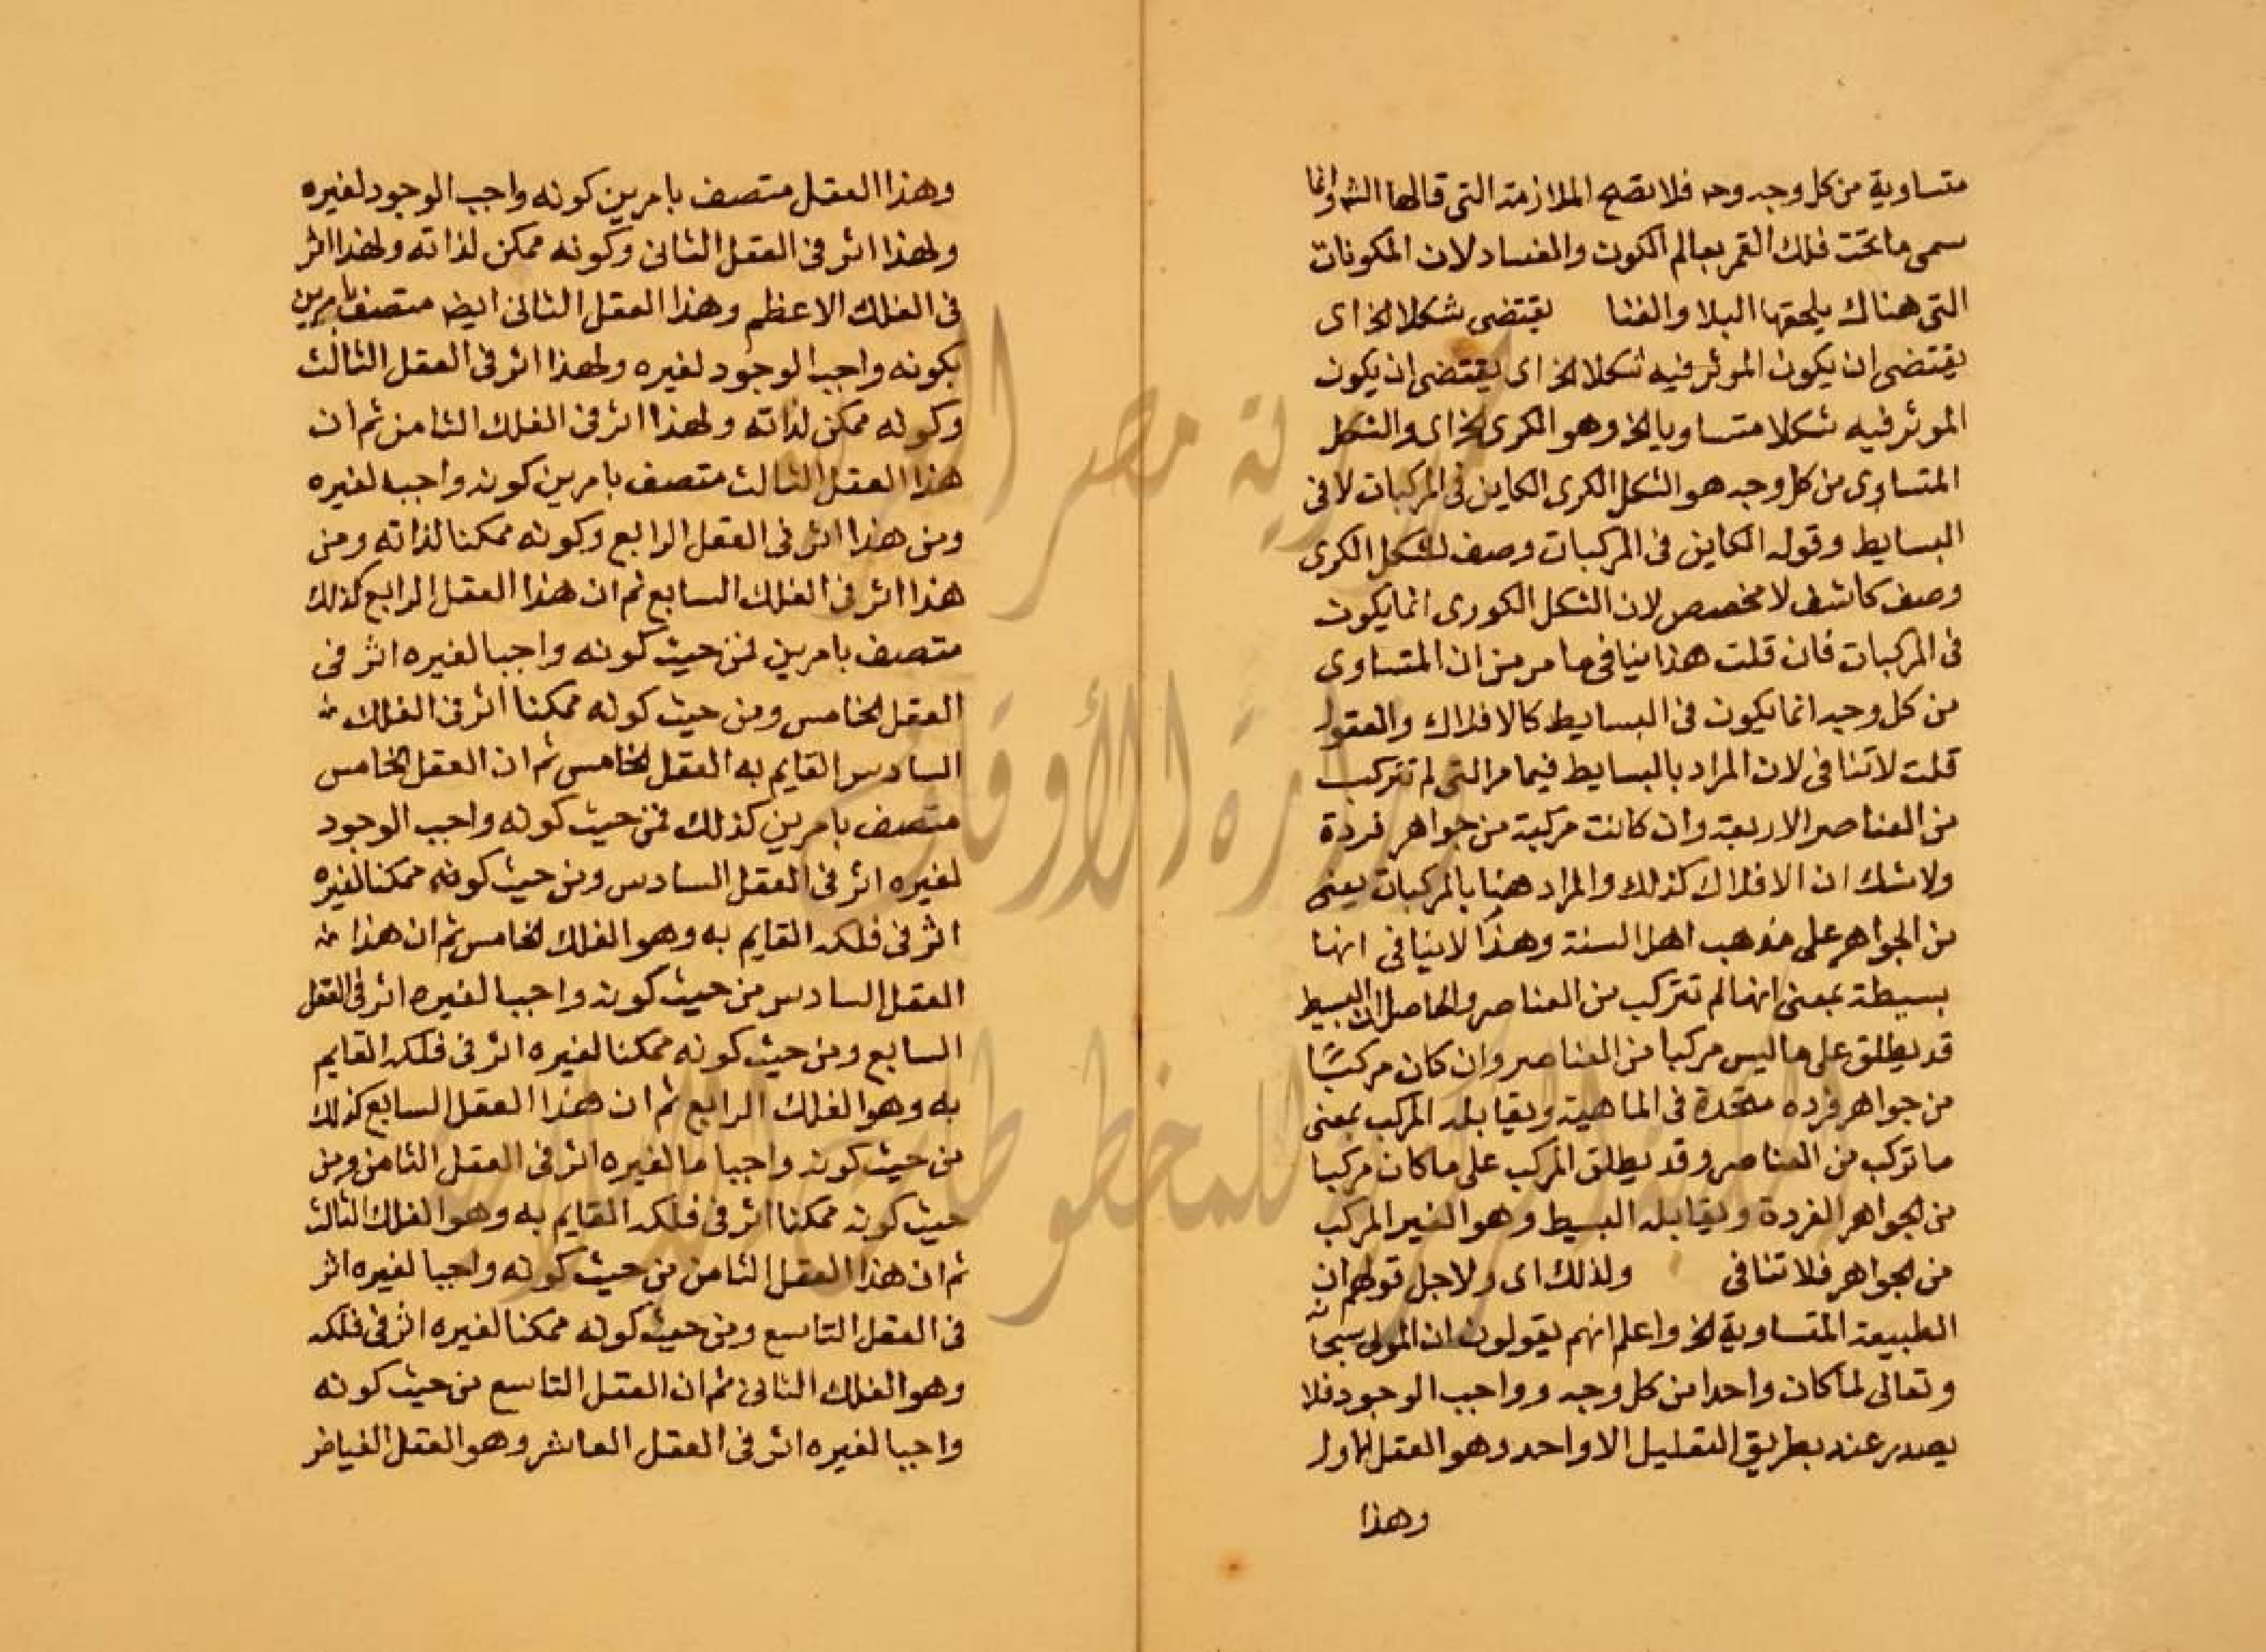 متساوية من كل وجه وحـ فلا تصح الملازمة التى قالها الشـ وانما
سمى ما تحت فلك القمر بعالم الكون والفساد لان المكونات
التى هناك يلحقها البلا والفنا يقتضى شكلا الخ اى
يقتضى ان يكون الموثر فيه شكلا الخ اى يقتضى ان يكون
الموثر فيه شكلا متساويا الخ وهو الكرى الخ اى والشكل
المتساوى من كل وجه هو الشكل الكرى الكاين فى المركبات لا فى
البسايط وقوله الكاين فى المركبات وصف لشكل الكرى
وصف كاشف لا مخصص لان الشكل الكورى انما يكون
فى المركبات فان قلت هذا ينافى ما مر من ان المتساوى
من كل وجه انما يكون فى البسايط كالافلاك والعقول
قلت لا تنافى لان المراد بالبسايط فيما مر التى لم تتركب
من العناصر الاربعة وان كانت مركبة من جواهر فردة
ولا شك ان الافلاك كذلك والمراد هنا بالمركبات يعنى
من الجواهر على مذهب اهل السنة وهذا لا ينافى انها
بسيطة بمعنى انها لم تتركب من العناصر والحاصل ان البسيط
قد يطلق على ما ليس مركبا من العناصر وان كان مركبًا
من جواهر فرده متحدة فى الماهية ويقابله المركب بمعنى
ما تركب من العناصر وقد يطلق المركب على ما كان مركبا
من الجواهر الفردة ويقابله البسيط وهو الغير المركب
من الجواهر فلا تنافى ولذلك اى ولاجل قولهم ان
الطبيعة المتساوية الخ واعلم انهم يقولون ان المولى سبحانه
وتعالى لما كان واحدا من كل وجه وواجب الوجود فلا
يصدر عنه بطريق التعليل الا واحد وهو العقل الاول
وهذا
وهذا العقل متصف بامرين كونه واجب الوجود لغيره
ولهذا اثر فى العقل الثانى وكونه ممكن لذاته ولهذا اثر
فى الفلك الاعظم وهذا العقل الثانى ايضـ متصف بامرين
بكونه واجب الوجود لغيره ولهذا اثر فى العقل الثالث
وكونه ممكن لذاته ولهذا اثر فى الفلك الثامن ثم ان
هذا العقل الثالث متصف بامرين كونه واجب لغيره
ومن هذا اثر فى العقل الرابع وكونه ممكنا لذاته ومن
هذا اثر فى الفلك السابع ثم ان هذا العقل الرابع كذلك
متصف بامرين فمن حيث كونه واجبا لغيره اثر فى
العقل الخامس ومن حيث كونه ممكنا اثر فى الفلك
السادس القايم به العقل الخامس ثم ان العقل الخامس
متصف بامرين كذلك فمن حيث كونه واجب الوجود
لغيره اثر فى العقل السادس ومن حيث كونه ممكنا لغيره
اثر فى فلكه القايم به وهو الفلك الخامس ثم ان هذا
العقل السادس من حيث كونه واجبا لغيره اثر فى العقل
السابع ومن حيث كونه ممكنا لغيره اثر فى فلكه القايم
به وهو الفلك الرابع ثم ان هذا العقل السابع كذلك
من حيث كونه واجبا ما لغيره اثر فى العقل الثامن ومن
حيث كونه ممكنا اثر فى فلكه القايم به وهو الفلك الثالث
ثم ان هذا العقل الثامن من حيث كونه واجبا لغيره اثر
فى العقل التاسع ومن حيث كونه ممكنا لغيره اثر فى فلكه
وهو الفلك الثانى ثم ان العقل التاسع من حيث كونه
واجبا لغيره اثر فى العقل العاشر وهو العقل الفياض